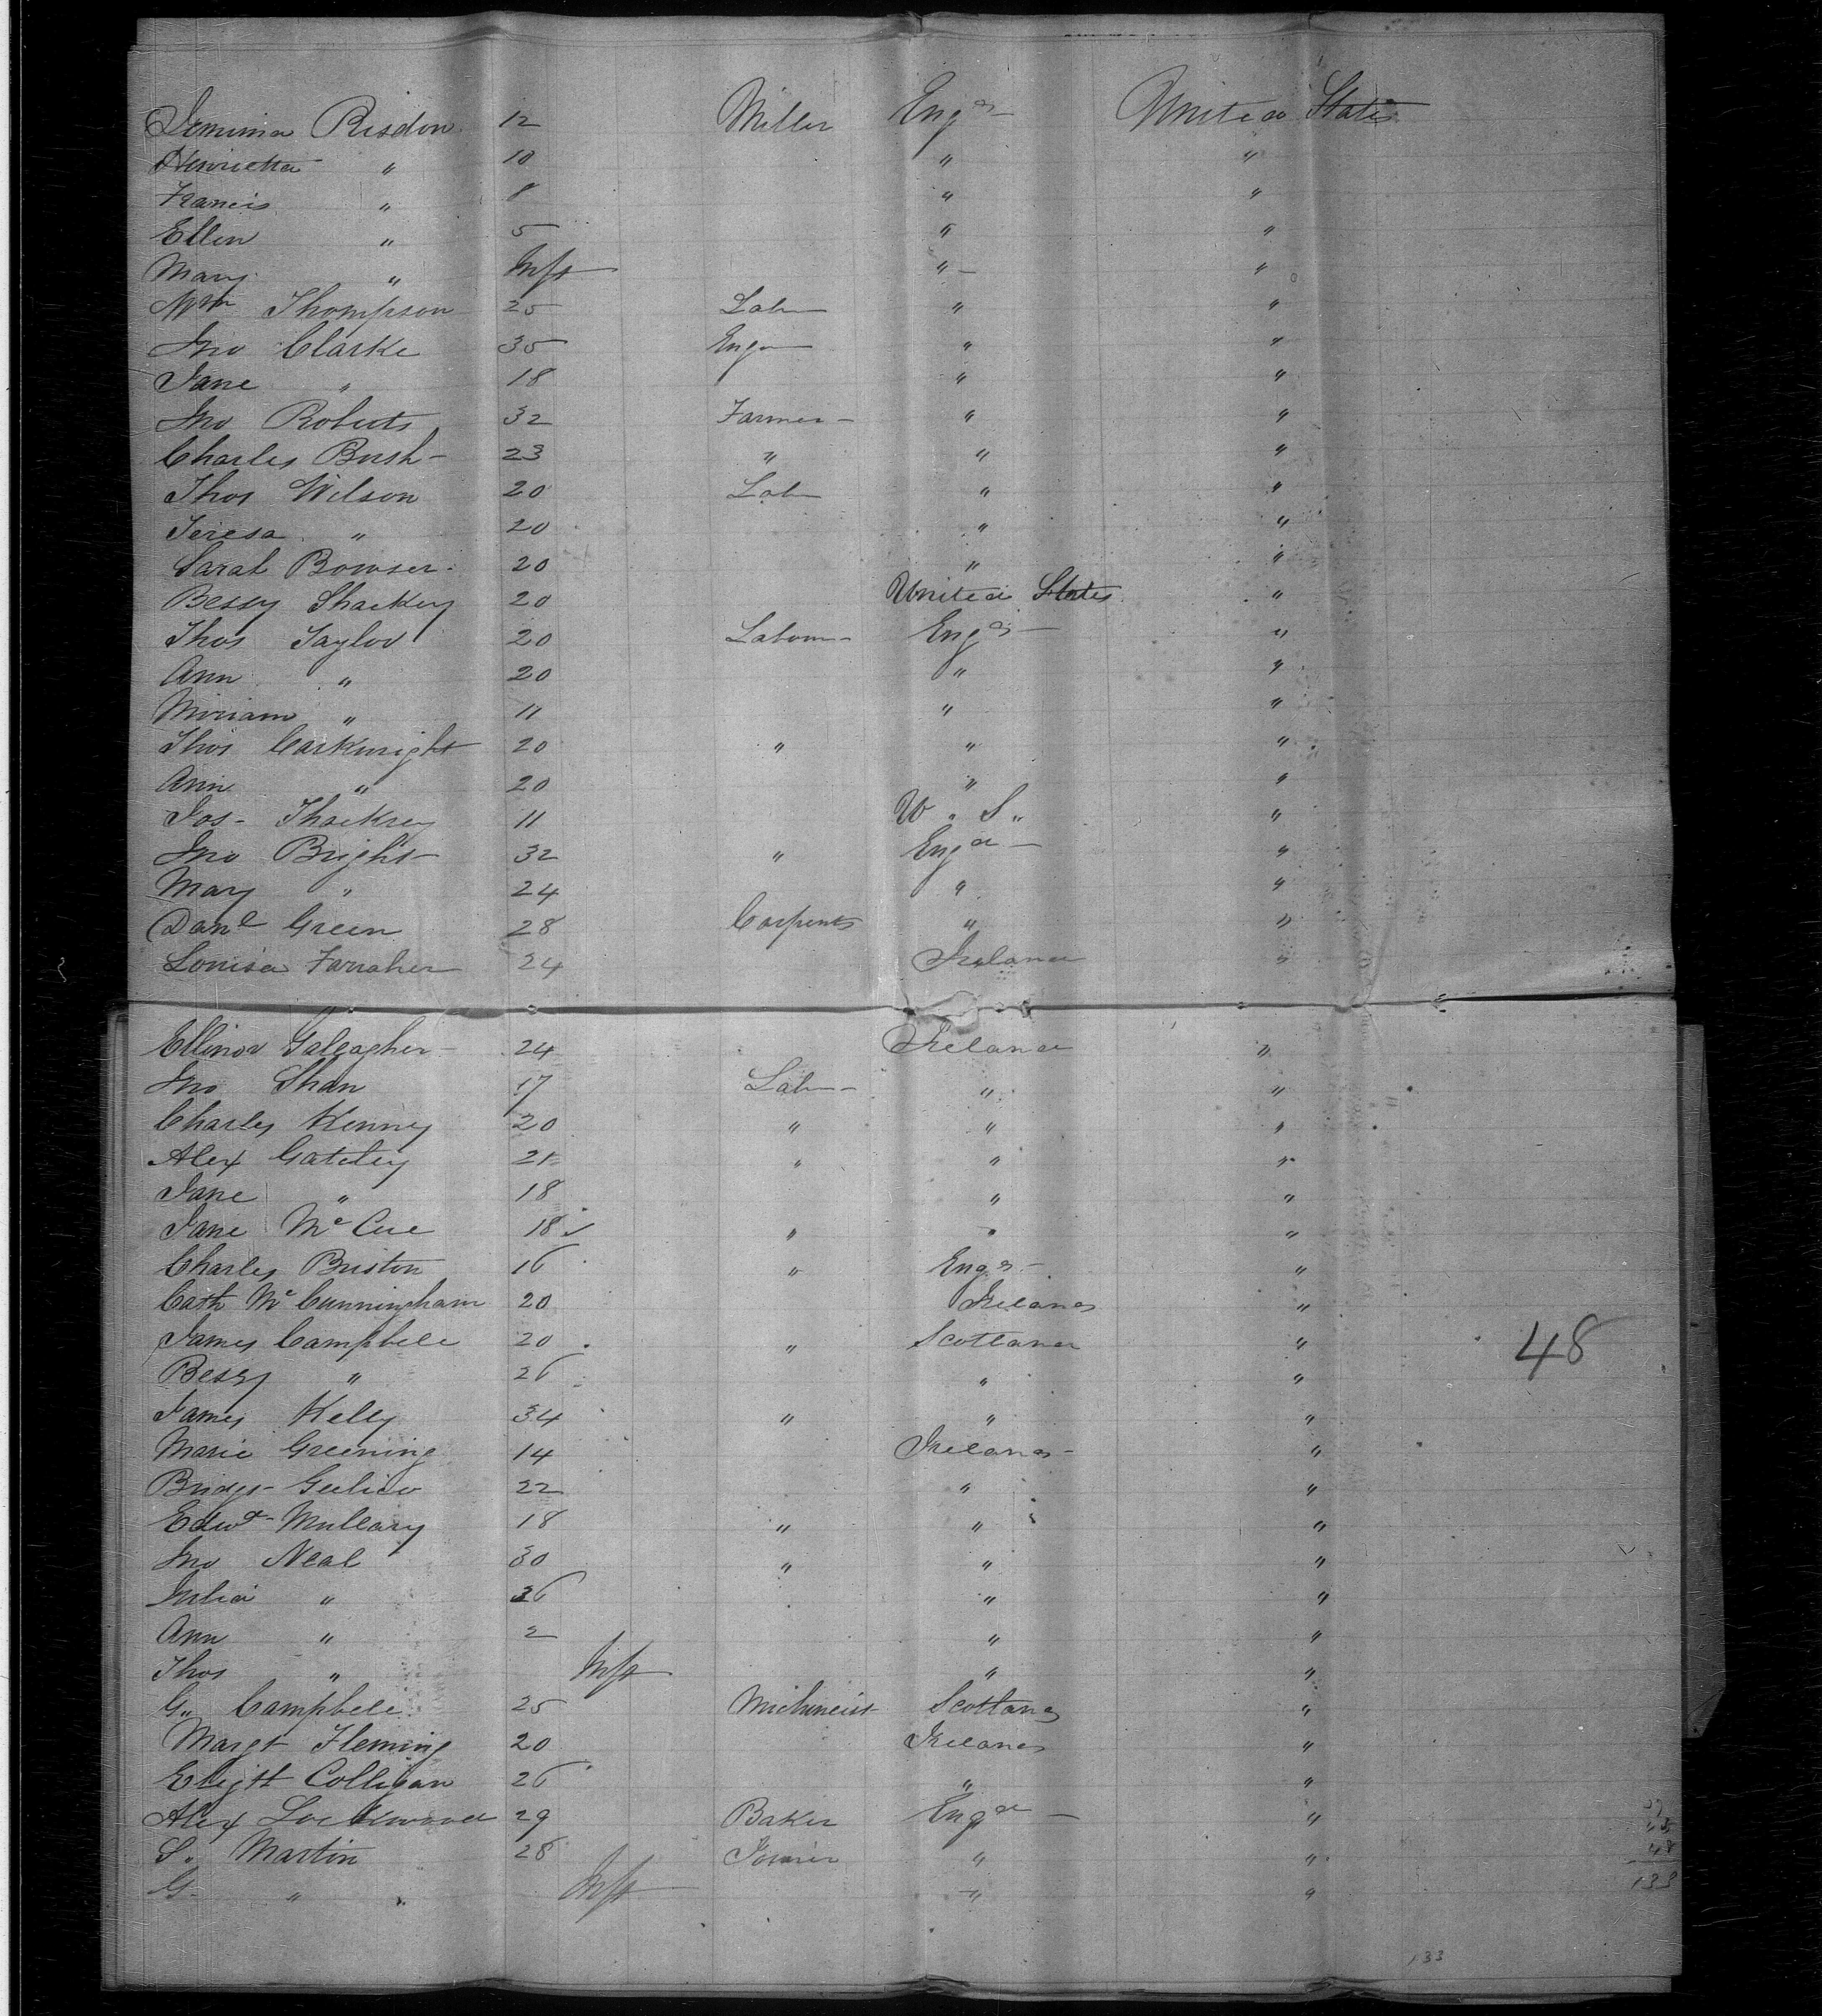 Jemima Risdon 12 Miller Engd United States
Henrietta " 10 " "
Francis " 8 " "
Ellen " 5 " "
Mary " Inft " "
Wm Thompson 25 Labr " "
Jno Clarke 35 Engr " "
Jane " 18 " "
Jno Roberts 32 Farmer " "
Charles Bush 23 " " "
Thos Wilson 20 Labr " "
Teresa " 20 " "
Sarah Bowser 20 " "
Bessy 20 United States "
Thos Taylor 20 Labour Engd "
Ann " 20 " "
Miriam " 11 " "
Thos Cartwright 20 " " "
Ann " 20 " "
Jos Thackrey 11 U. S. "
Jno Bright 32 " Engd "
Mary " 24 " "
Danl Green 28 Carpenter " "
Louisa Farraher 24 Ireland "
Ellinor Galeagher 24 Ireland "
Jno Shan 17 Labr " "
Charles Kenney 20 " " "
Alex Gateley 21 " " "
Jane " 18 " "
Jane McCue 18 " " "
Charles Briston 16 " Engd "
Cath McCunningham 20 Ireland "
James Campbell 20 " Scotland "
Bessy " 26 " "
James Kelly 34 " " "
Marie Greening 14 Ireland "
22 " "
Edwd Mullary 18 " " "
Jno Neal 30 " " "
Julia " 26 " "
Ann " 2 " "
Thos " Inft " "
G. Campbell 25 Scotland "
Margt Fleming 20 Ireland "
Colligan 26 " "
Alex Lockwood 29 Baker Engd "
S. Martin 28 Joiner " "
G. " Inft " "
48
48
133
133